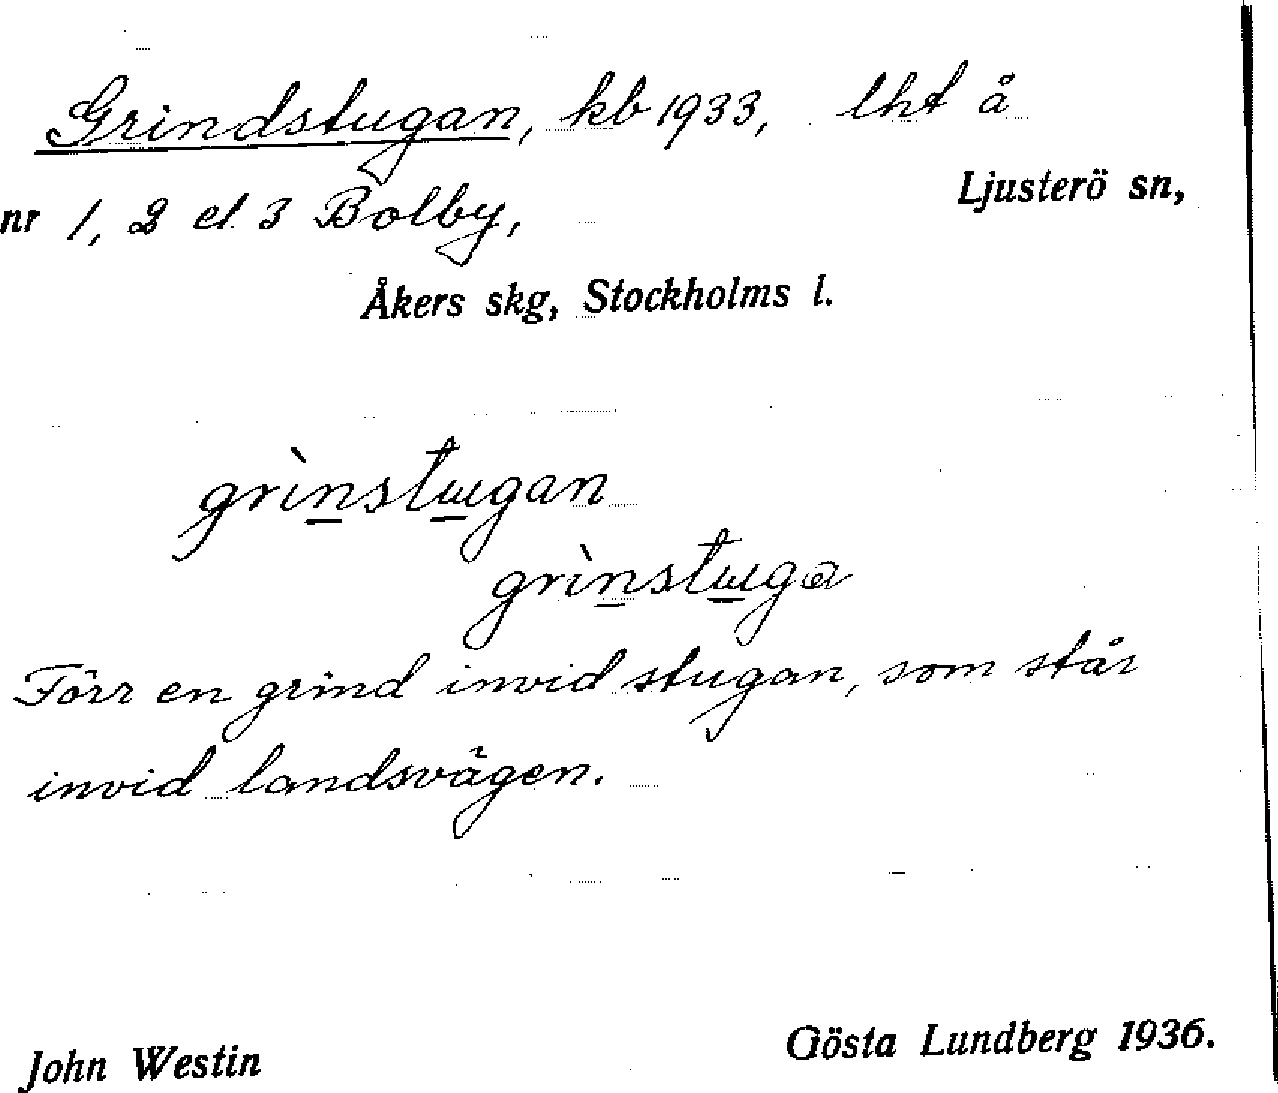 Grindstugan, kb 1933, lht å
nr 1, 2 el. 3 Bolby, Ljusterö sn,
Åkers skg, Stockholms l.
grìnstugan
grìnstuga
Förr en grind invid stugan, som står
invid landsvägen.
John Westin Gösta Lundberg 1936.